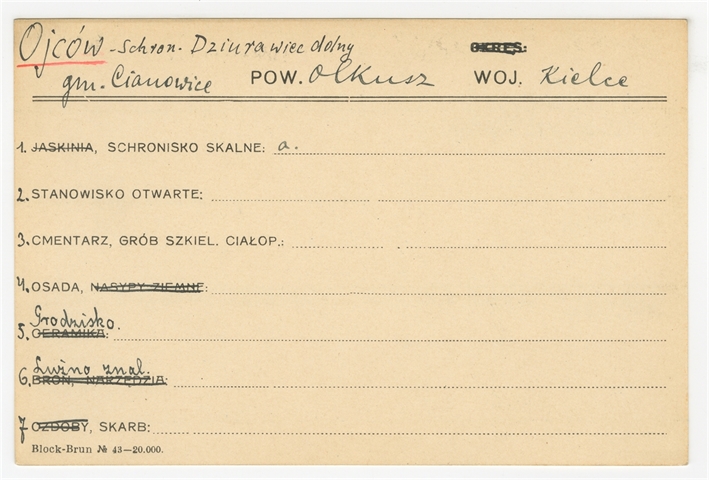 Ojców - Schron. Dziurawiec dolny OKRĘS:
gm. Cianowice POW. Olkusz WOJ. Kielce
1. JASKINIA, SCHRONISKO SKALNE: a.
2. STANOWISKO OTWARTE:
3. CMENTARZ, GRÓB SZKIEL. CIAŁOP.:
4. OSADA, NASYPY ZIEMNE:
Grodzisko.
5. CERAMIKA:
Luźno znal.
6. BROŃ, NARZĘDZIA:
7 OZDOBY, SKARB:
Block-Brun № 43—20.000.